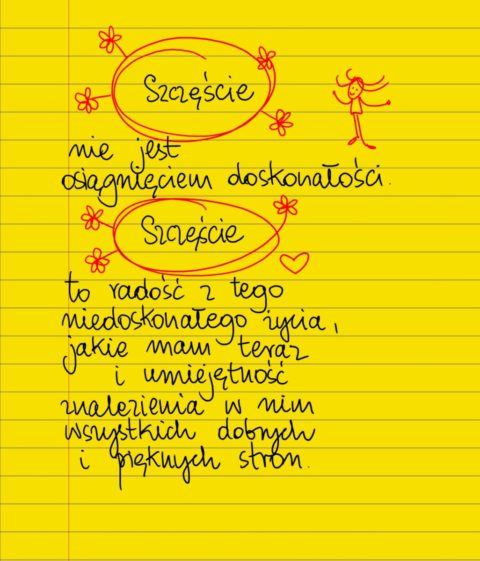 Szczęście
nie jest
osiągnięciem doskonałości.
Szczęście
to radość z tego
niedoskonałego życia,
jakie mam teraz
i umiejętność
znalezienia w nim
wszystkich dobrych
i pięknych stron.